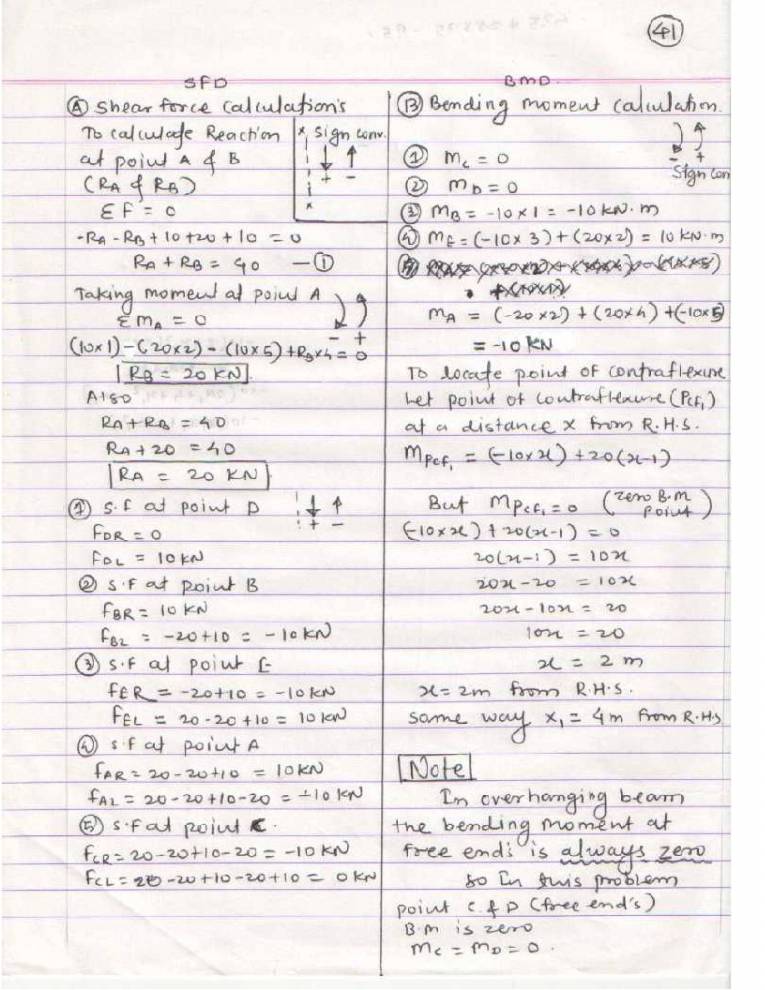 41
SFD
Ⓐ Shear force Calculation's
To calculate Reaction
at point A & B
(RA & RB)
Sign conv.
+ -
ΣF = 0
-RA - RB + 10 + 20 + 10 = 0
RA + RB = 40 — ①
Taking moment at point A
ΣMA = 0
- +
(10×1) - (20×2) - (10×5) + RB×4 = 0
RB = 20 KN
Also
RA + RB = 40
RA + 20 = 40
RA = 20 KN
① S.F at point D
+ -
FDR = 0
FDL = 10 KN
② S.F at point B
FBR = 10 KN
FBL = -20+10 = -10 KN
③ S.F at point E
FER = -20+10 = -10 KN
FEL = 20-20+10 = 10 KN
④ S.F at point A
FAR = 20-20+10 = 10 KN
FAL = 20-20+10-20 = -10 KN
⑤ S.F at point C.
FCR = 20-20+10-20 = -10 KN
FCL = 20-20+10-20+10 = 0 KN
BMD
Ⓑ Bending moment calculation.
- +
Sign con
① Mc = 0
② MD = 0
③ MB = -10×1 = -10 KN·m
④ ME = (-10×3) + (20×2) = 10 KN·m
⑤
MA = (-20×2) + (20×4) + (-10×5)
= -10 KN
To locate point of contraflexure
Let point of contraflexure (Pcf1)
at a distance x from R.H.S.
MPcf1 = (-10×x) + 20(x-1)
But MPcf1 = 0 (zero B.M Point)
(-10×x) + 20(x-1) = 0
20(x-1) = 10x
20x-20 = 10x
20x-10x = 20
10x = 20
x = 2 m
x = 2m from R.H.S.
same way x1 = 4m from R.H.S
Note
In overhanging beam
the bending moment at
free end's is always zero
so In this problem
point C & D (free end's)
B.M is zero
Mc = MD = 0.